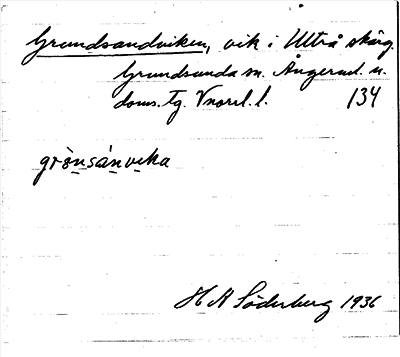 Grundsandviken, vik i Ultrå skärg.
Grundsunda sn. Ångerml. n.
doms. tg. Vnorrl. l. 134
grȯ̀nsánvika
H A Söderberg 1936